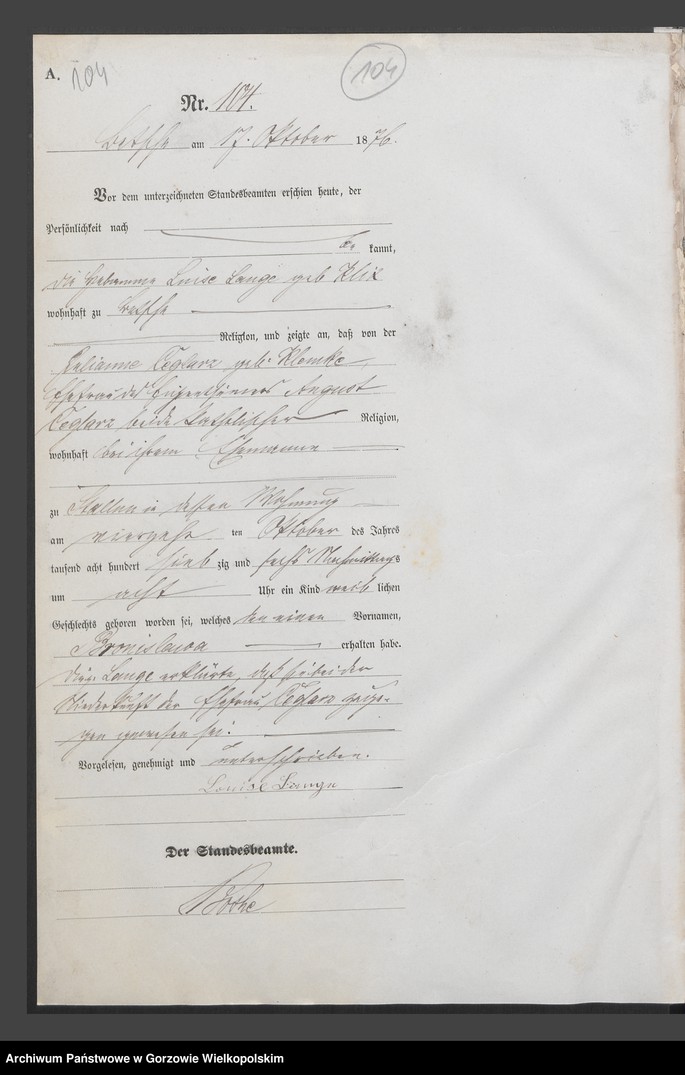 A. 104
104
Nr. 104.
Betsche am 17. Oktober 1876.
Vor dem unterzeichneten Standesbeamten erschien heute, der
Persönlichkeit nach
be kannt,
die Hebamme Luise Lange geb. Klix
wohnhaft zu Betsche
Religion, und zeigte an, daß von der
Julianne Ceglarz geb. Klemke,
Ehefrau des Eigenthümers August
Ceglarz beide katholischer Religion,
wohnhaft bei ihrem Ehemanne
zu Stallun in dessen Wohnung
am vierzehn ten Oktober des Jahres
tausend acht hundert sieb zig und sechs Nachmittags
um acht Uhr ein Kind weib lichen
Geschlechts geboren worden sei, welches den einen Vornamen,
Bronislawa erhalten habe.
Die Lange erklärte, daß sie bei der
Niederkunft der Ehefrau Ceglarz zuge-
gen gewesen sei.
Vorgelesen, genehmigt und unterschrieben.
Louise Lange
Der Standesbeamte.
Archiwum Państwowe w Gorzowie Wielkopolskim